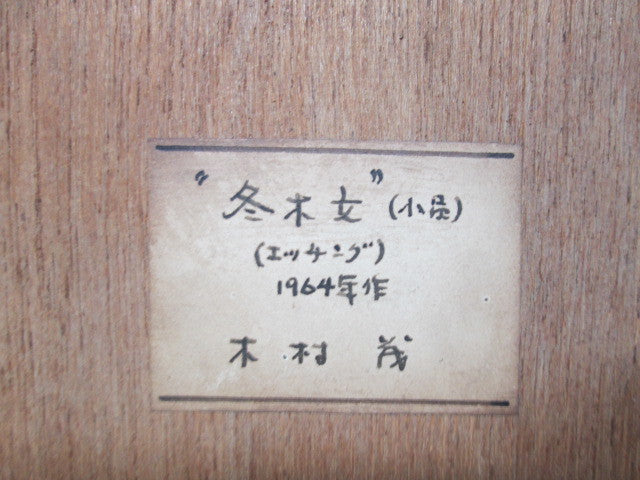 “冬木立” (小品)
(エッチング)
1964年作
木村 茂